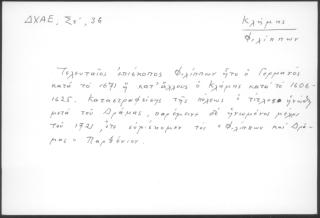 ΔΧΑΕ, Στ', 36
Κλήμης
Φιλίππων
Τελευταῖος ἐπίσκοπος Φιλίππων ἦτο ὁ Γερμανός
κατά τό 1671 ἤ κατ' ἄλλους ὁ Κλήμης κατά τό 1606-
1625. Καταστραφείσης τῆς πόλεως ὁ τίτλος ἡνώθη
μετά τοῦ Δράμας, παρέμεινε δέ ἡνωμένος μέχρι
τοῦ 1721, ὅτε εὑρίσκομεν τόν "Φιλίππων καί Δρά-
μας" Παρθένιον.